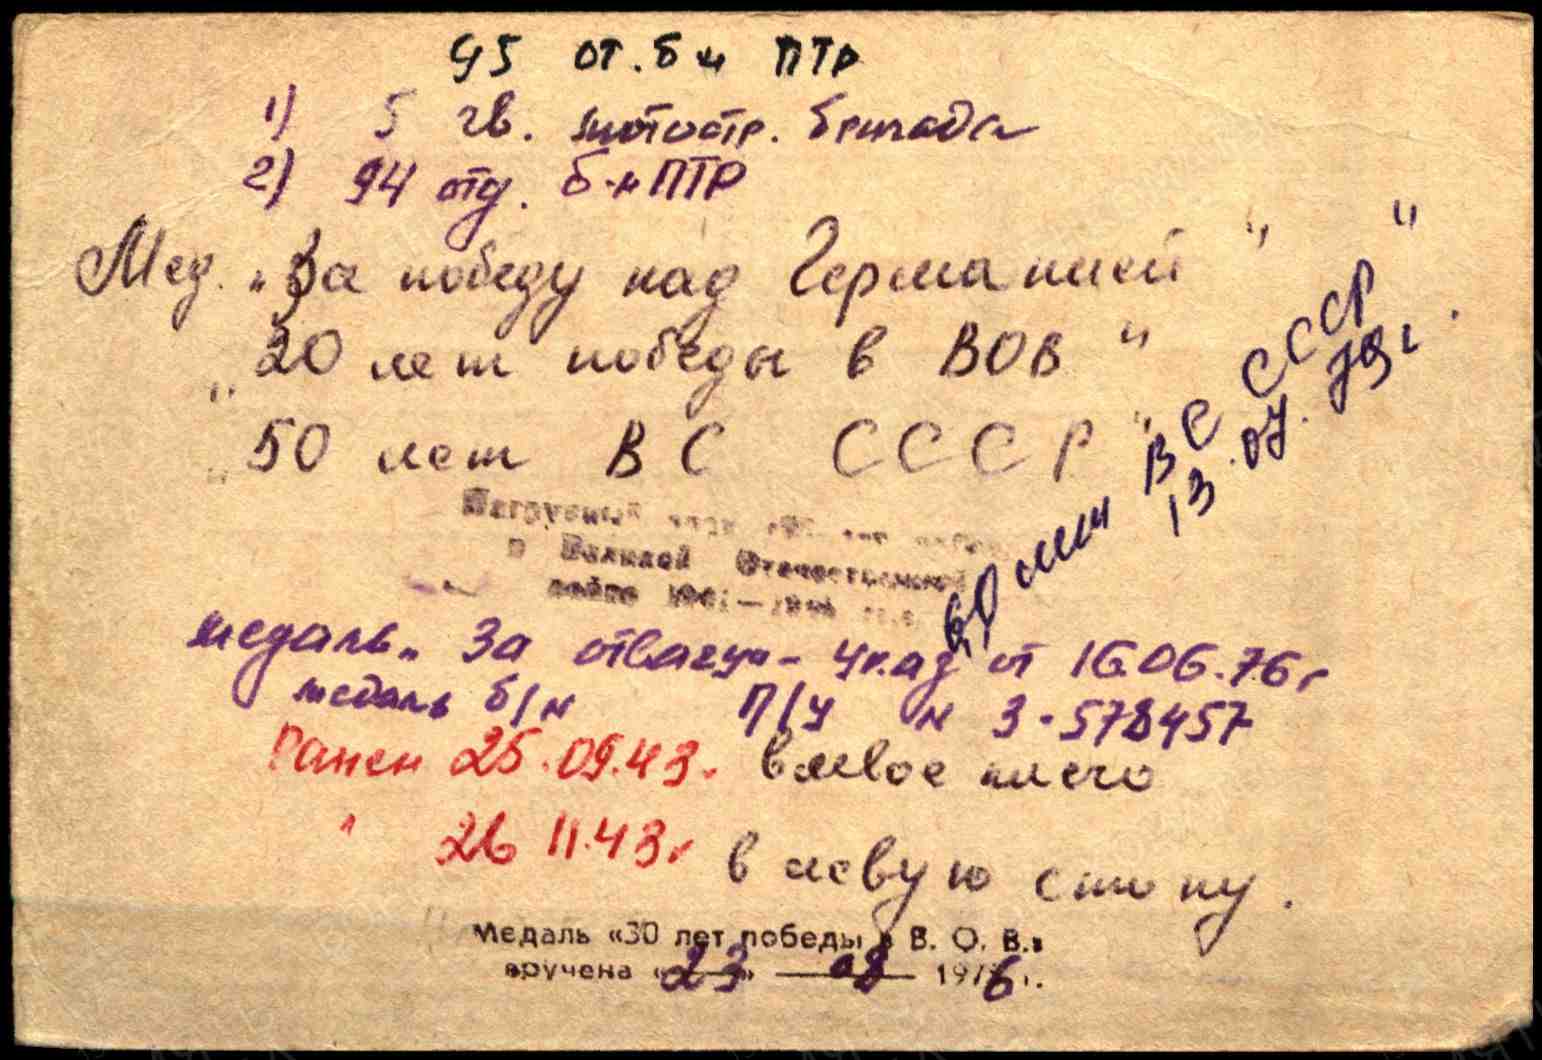 95 от. б-н ПТР
1) 5 гв. мотостр. бригада
2) 94 отд. б-н ПТР
Мед. „За победу над Германией"
„20 лет победы в ВОВ"
„50 лет ВС СССР"
60 лет ВС СССР"
13.07.79г.
Нагрудный знак
в Великой Отечественной
войне 1941—1945 гг.
медаль „За отвагу" - Указ от 16.06.76г
медаль б/н П/у н 3-578457
Ранен 25.09.43г. в левое плечо
" 26 11.43г в левую стопу.
Медаль «30 лет победы в В. О. В.»
вручена «23» 02 1976г.